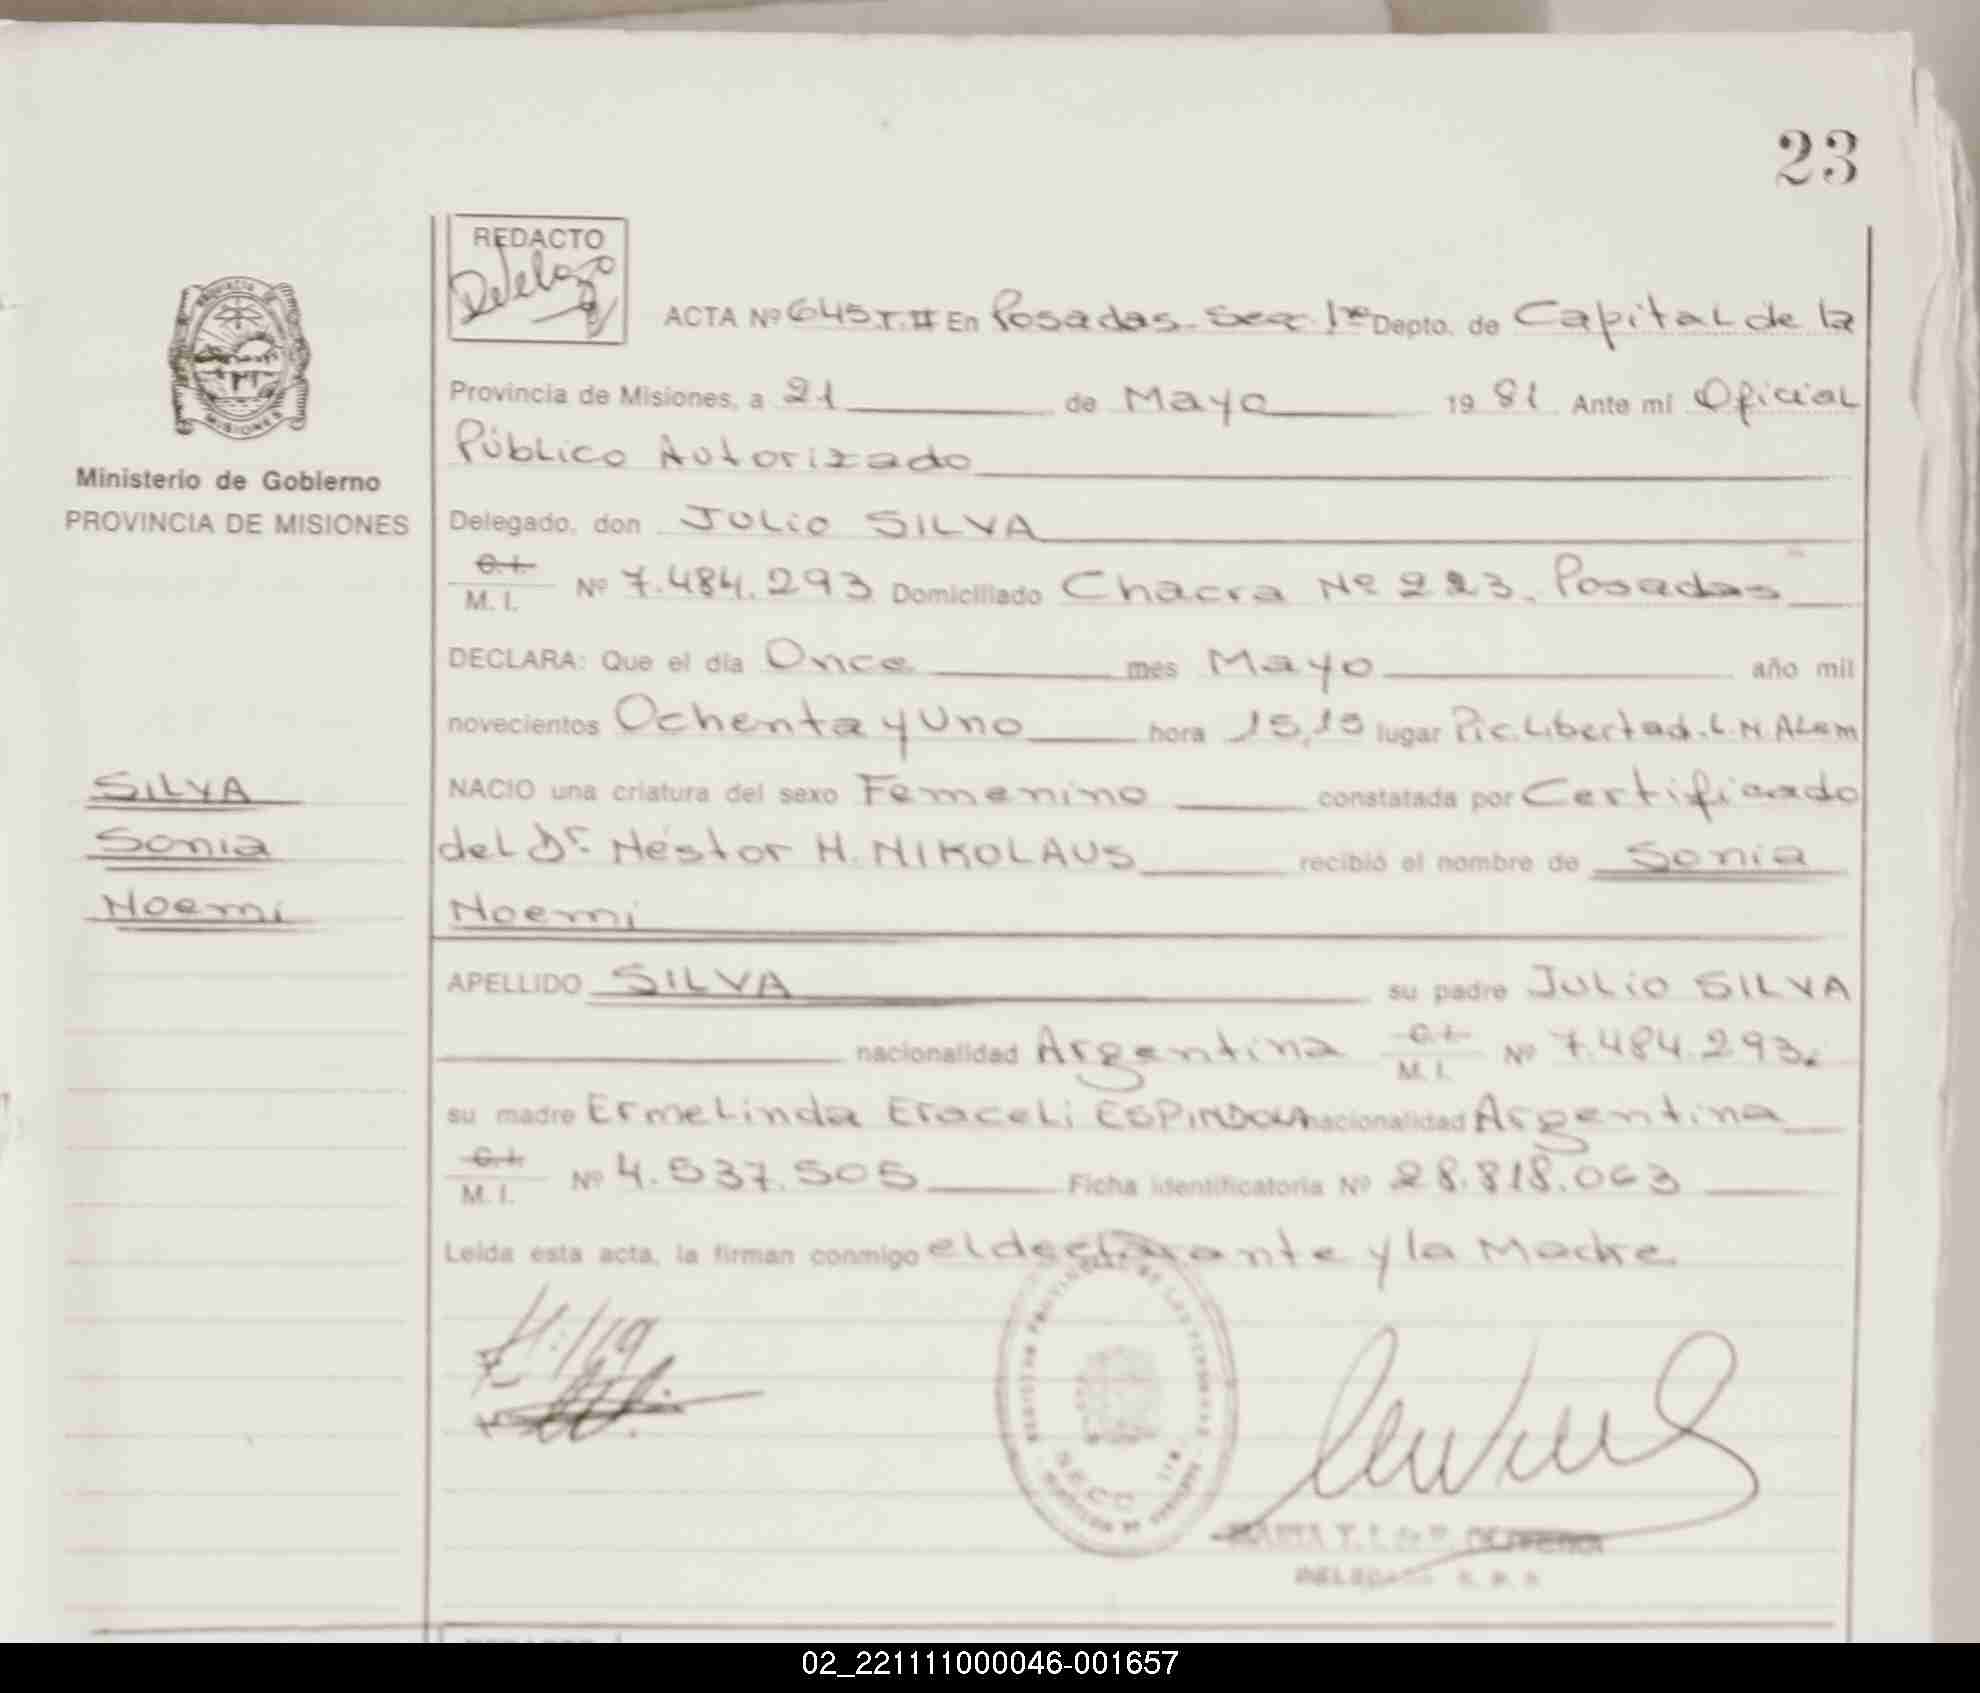 23
REDACTO
ACTA Nº 645 T. II En Posadas - Secc. 1ra Depto. de Capital de la
Provincia de Misiones, a 21 de Mayo 1981 Ante mi Oficial
Público Autorizado
Ministerio de Gobierno
PROVINCIA DE MISIONES
Delegado, don JULIO SILVA
C.I. M.I. Nº 7.484.293 Domiciliado Chacra Nº 223. Posadas
DECLARA: Que el día Once mes Mayo año mil
novecientos Ochenta y Uno hora 15,15 lugar Pic. Libertad. L.N. ALem
SILVA
NACIO una criatura del sexo Femenino constatada por Certificado
Sonia
del Dr. Néstor H. NIKOLAUS recibió el nombre de Sonia
Noemi
Noemi
APELLIDO SILVA su padre JULIO SILVA
nacionalidad Argentina C.I. M.I. Nº 7.484.293.
su madre Ermelinda Eraceli ESPINDOLA nacionalidad Argentina
C.I. M.I. Nº 4.537.505 Ficha identificatoria Nº 28.818.063
Leída esta acta, la firman conmigo el declarante y la Madre.
02_221111000046-001657